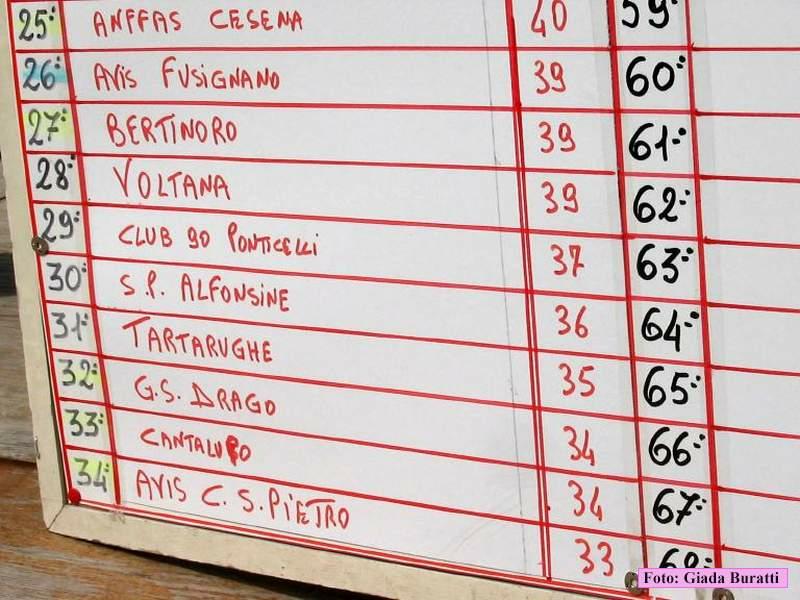 25: ANFFAS CESENA 40 59:
26: AVIS FUSIGNANO 39 60:
27: BERTINORO 39 61:
28: VOLTANA 39 62:
29: CLUB 90 PONTICELLI 37 63:
30: S.P. ALFONSINE 36 64:
31: TARTARUGHE 35 65:
32: G.S. DRAGO 34 66:
33: CANTALUPO 34 67:
34: AVIS C. S. PIETRO 33 68:
Foto: Giada Buratti